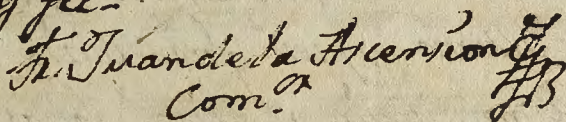 Fr. Juan de la Ascension
Com.or